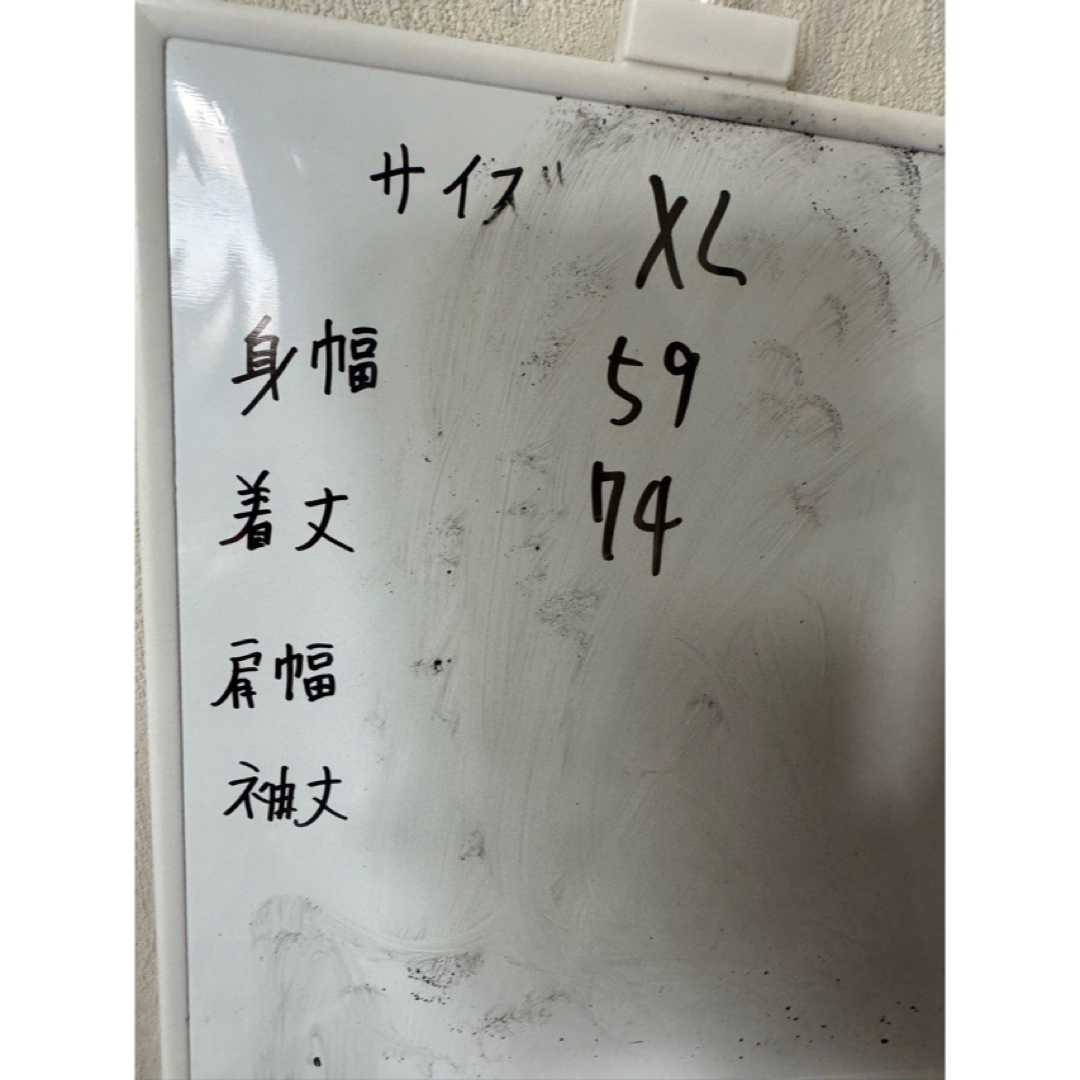 サイズ XL
身幅 59
着丈 74
肩幅
袖丈